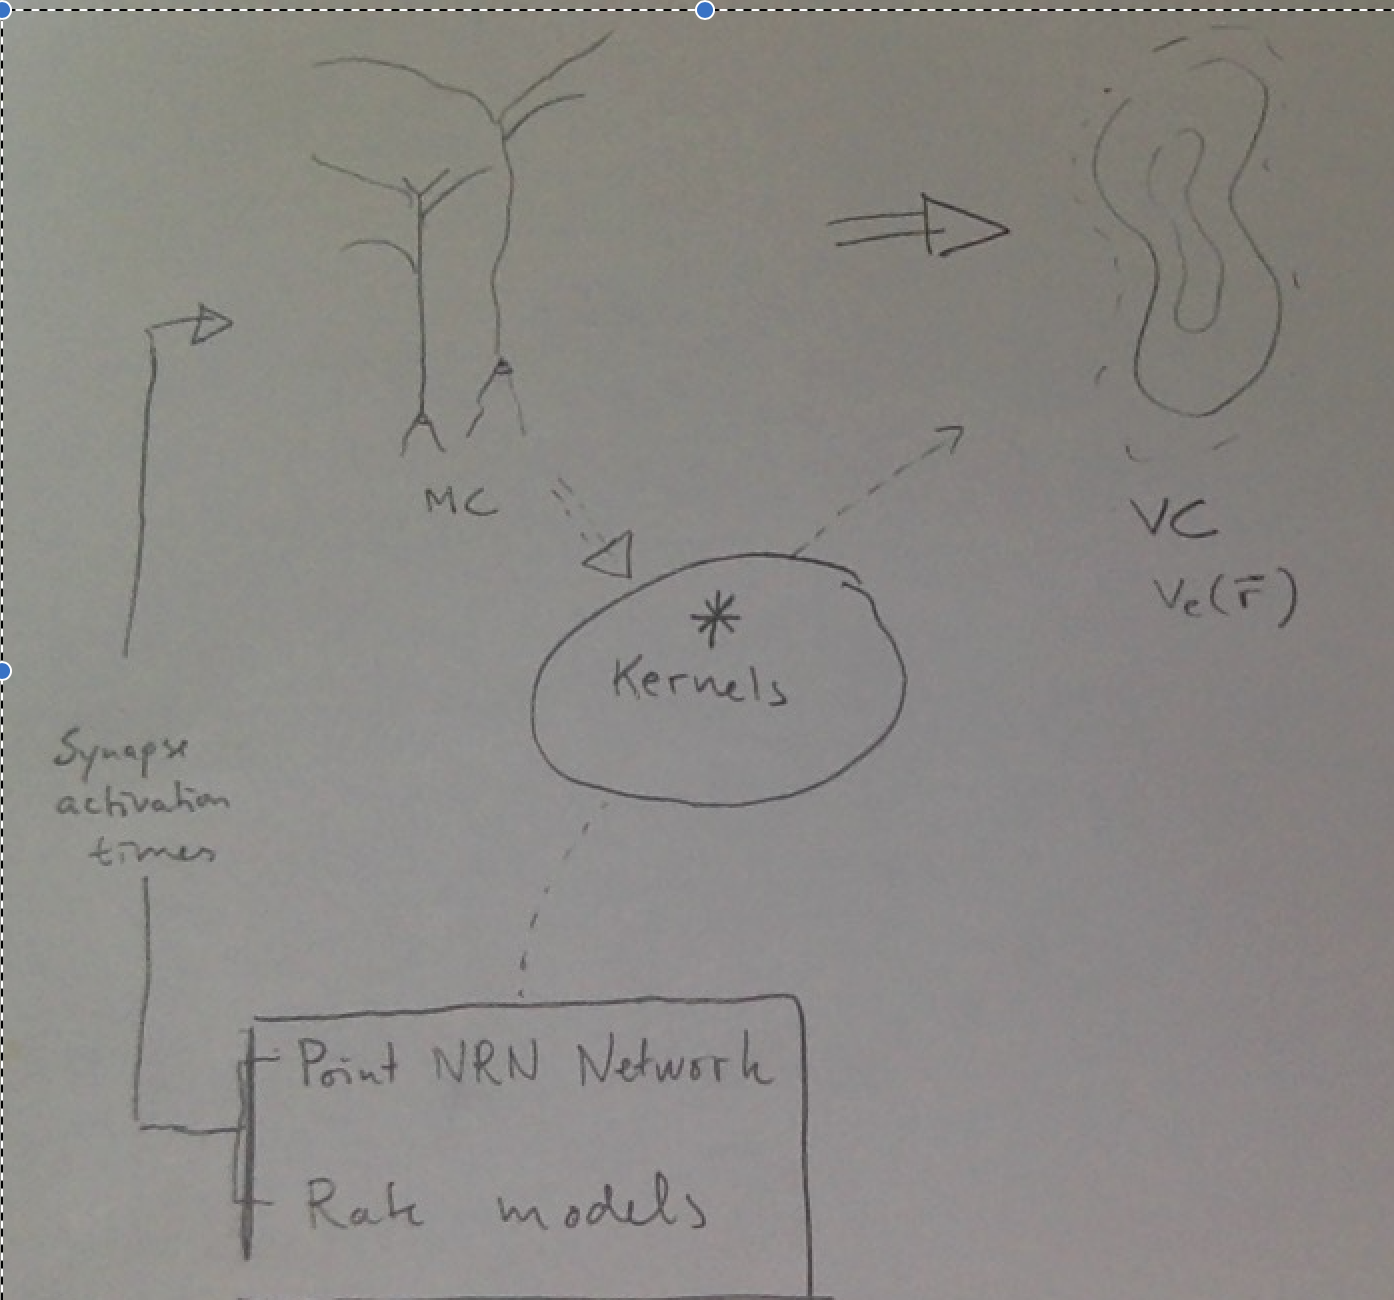 MC
VC
Ve(r̄)
*
Kernels
Synapse
activation
times
Point NRN Network
Rate models